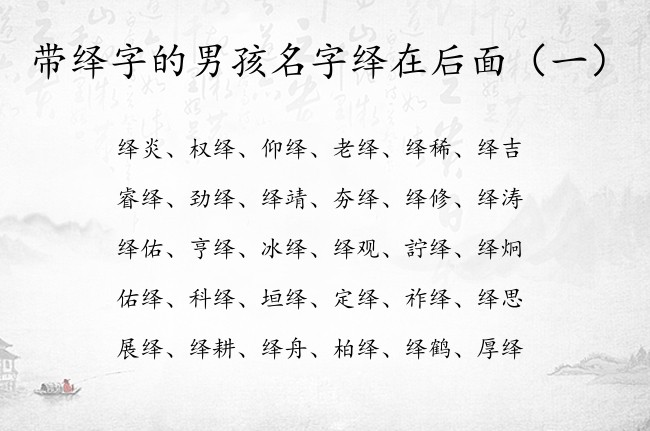 带绎字的男孩名字绎在后面（一）
绎炎、权绎、仰绎、老绎、绎稀、绎吉
睿绎、劲绎、绎靖、夯绎、绎修、绎涛
绎佑、亨绎、冰绎、绎观、詝绎、绎炯
佑绎、科绎、垣绎、定绎、祚绎、绎思
展绎、绎耕、绎舟、柏绎、绎鹤、厚绎